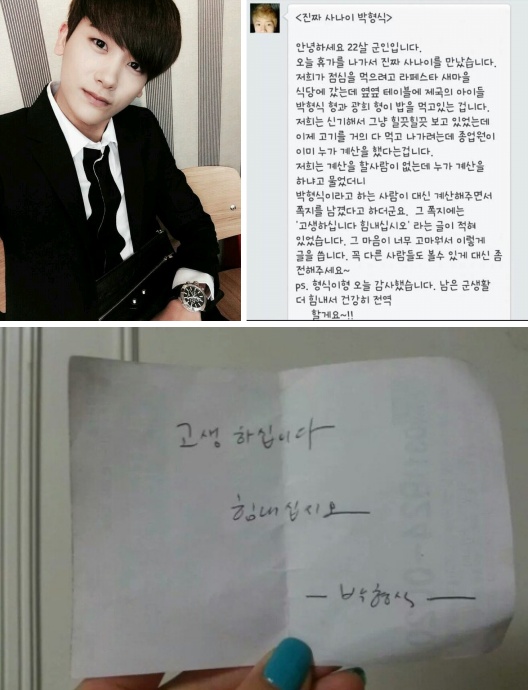 <진짜 사나이 박형식>
안녕하세요 22살 군인입니다.
오늘 휴가를 나가서 진짜 사나이를 만났습니다.
저희가 점심을 먹으려고 라페스타 새마을
식당에 갔는데 옆옆 테이블에 제국의 아이들
박형식 형과 광희 형이 밥을 먹고있는 겁니다.
저희는 신기해서 그냥 힐끗힐끗 보고 있었는데
이제 고기를 거의 다 먹고 나가려는데 종업원이
이미 누가 계산을 했다는겁니다.
저희는 계산을 할사람이 없는데 누가 계산을
하냐고 물었더니
박형식이라고 하는 사람이 대신 계산해주면서
쪽지를 남겼다고 하더군요. 그 쪽지에는
'고생하십니다 힘내십시오' 라는 글이 적혀
있었습니다. 그 마음이 너무 고마워서 이렇게
글을 씁니다. 꼭 다른 사람들도 볼수 있게 대신 좀
전해주세요~
ps. 형식이형 오늘 감사했습니다. 남은 군생활
더 힘내서 건강히 전역
할게요~!!
고생 하십니다
힘내십시오
박형식